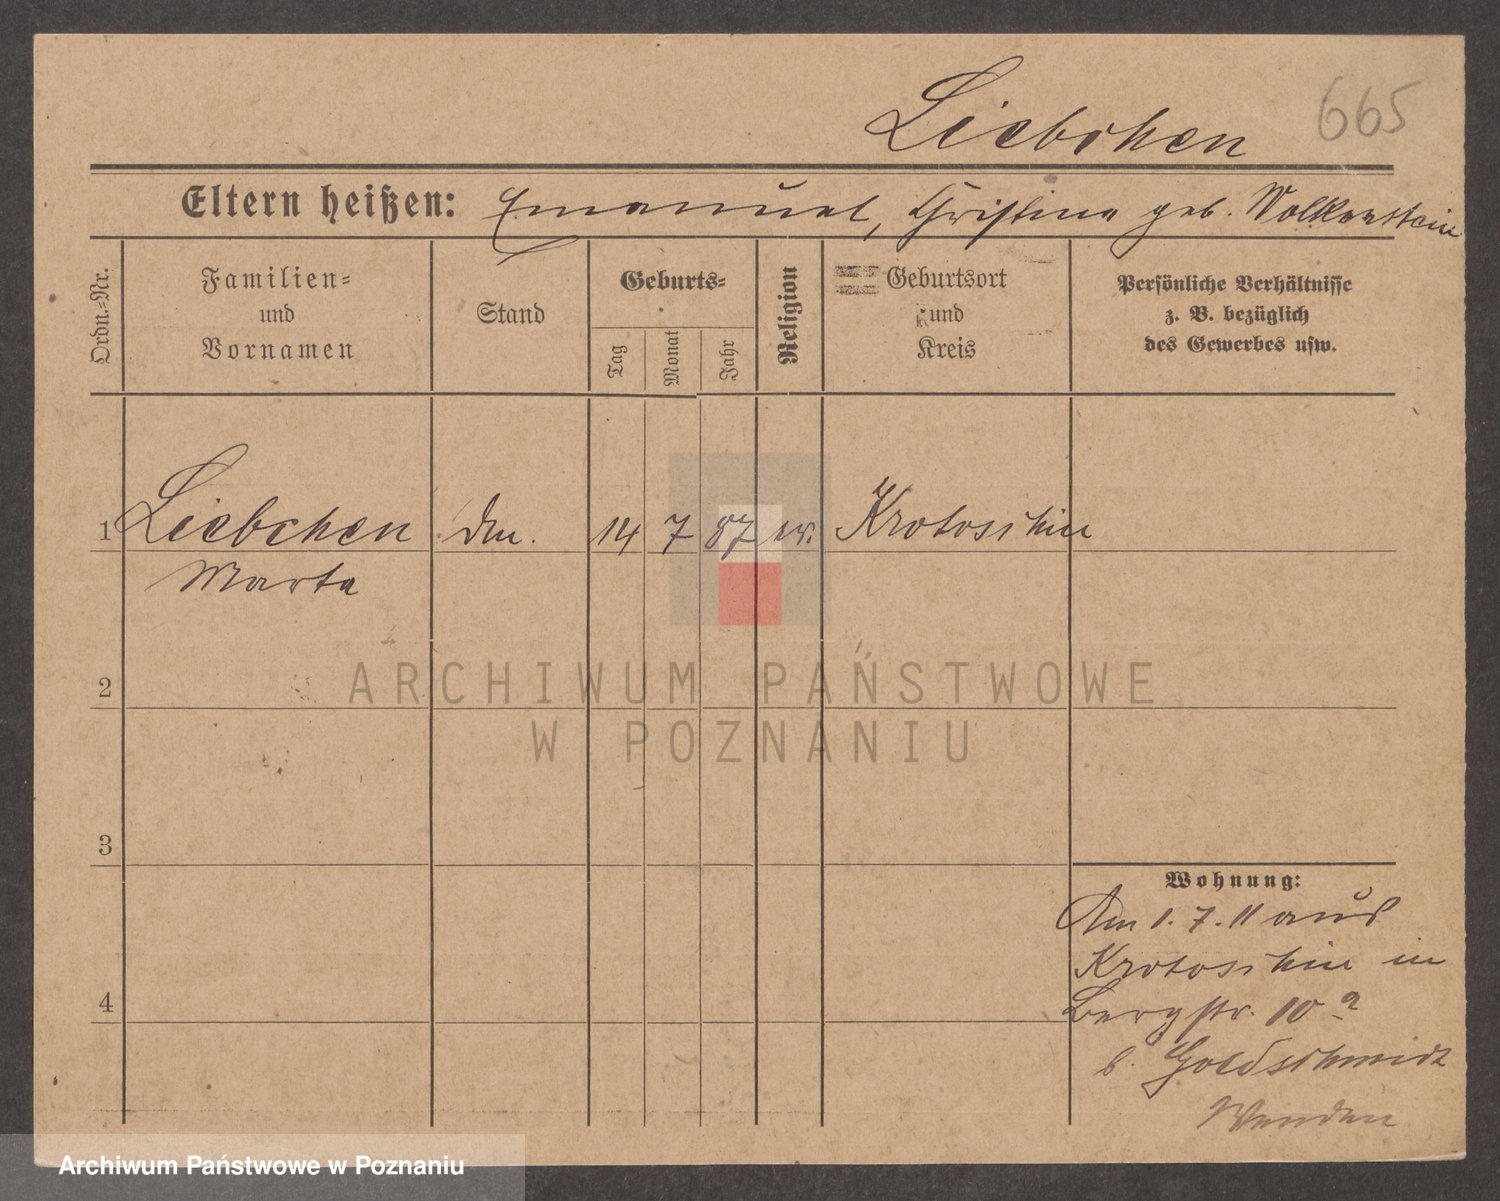 Liebchen 665
Eltern heißen: Emanuel, Christina geb. Wolkenstein
Ordn.=Nr.
Familien=
und
Vornamen
Stand
Geburts=
Tag
Monat
Jahr
Religion
Geburtsort
und
Kreis
Persönliche Verhältnisse
z. B. bezüglich
des Gewerbes usw.
1 Liebchen 14 7 87 ev. Krotoschin
Marta
ARCHIWUM PAŃSTWOWE
W POZNANIU
2
3
4
Wohnung:
Am 1.7.11 aus
Krotoschin in
Bergstr. 10a
b. Goldschmidt
Archiwum Państwowe w Poznaniu